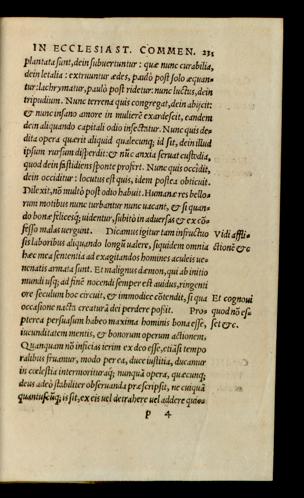 IN ECCLESIAST. COMMEN. 235
plantata sunt, dein subuertuntur: quæ nunc curabilia,
dein letalia: extruuntur ædes, paulò post solo æquan-
tur: lachrymatur, paulò post ridetur: nunc luctus, dein
tripudium. Nunc terrena quis congregat, dein abijcit:
& nunc insano amore in mulierẽ exardescit, eandem
dein aliquando capitali odio insectatur. Nunc quis de-
dita opera quærit aliquid qualecunq; id sit, dein illud
ipsum rursum disperdit: & nũc anxia seruat custodia,
quod dein fastidiens sponte profirt. Nunc quis occidit,
dein occiditur: locutus est quis, idem postea obticuit.
Dilexit, nõ multò post odio habuit. Humanæ res bello-
rum motibus nunc turbantur nunc uacant, & si quan-
do bonæ felicesq; uidentur, subitò in aduersas & ex cõ-
fesso malas uergunt. Dicamus igitur tam infructuo Vidi affli-
sis laboribus aliquando longũ ualere, siquidem omnia ctionẽ &c
hæc mea sententia ad exagitandos homines aculeis ue-
nenatis armata sunt. Et malignus dæmon, qui ab initio
mundi usq; ad finẽ nocendi semper est auidus, ringenti
ore seculum hoc circuit, & immodice cõtendit, si qua Et cognoui
occasione nacta creaturã dei perdere possit. Pro- quod nõ es-
pterea persuasum habeo maxima hominis bona esse, set &c.
iucunditatem mentis, & bonorum operum actionem.
Quanquam nõ inficias ierim ex deo esse, etiãsi tempo
ralibus fruamur, modo per ea, duce iustitia, ducamur
in cœlestia intermoriturãq; nunquã opera, quæcunq;
deus adeò stabiliter obseruanda præscripsit, ne cuiquã
quantuscũq; is sit, ex eis uel detrahere uel addere quic-
P 4